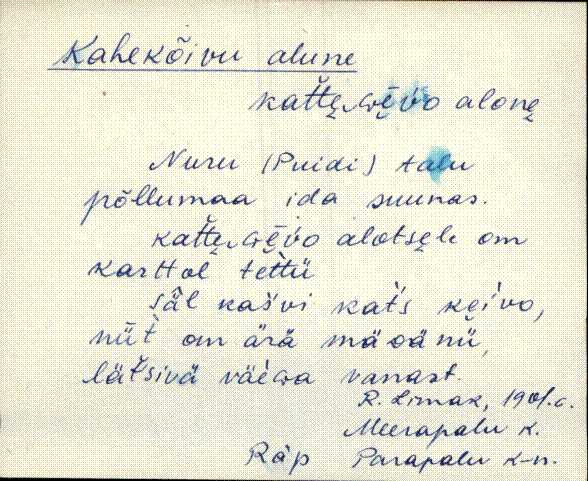 Kahekõivu alune
katte̮ɢe̮i̯vo alone̮
Nuru (Puidi) talu
põllumaa ida suunas.
katte̮ɢe̮i̯vo alotse̮le om
karttol tettü
säl kašvi kat's ke̮i̯vo,
nüt om ärä mädänü,
lätsivä väèga vanast.
R. Limak, 1901.a.
Meerapalu k.
Räp Parapalu k-n.